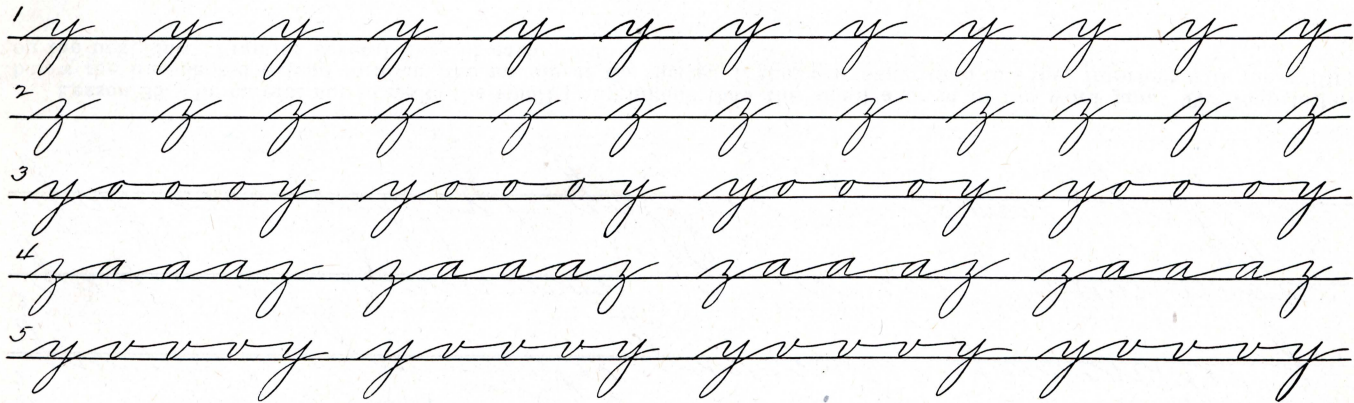 1 y y y y y y y y y y y y
2 z z z z z z z z z z z z
3 yoooy yoooy yoooy yoooy
4 zaaaz zaaaz zaaaz zaaaz
5 yvvvy yvvvy yvvvy yvvvy